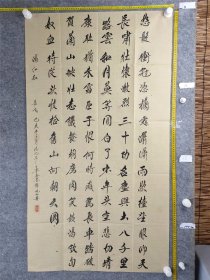 怒髮衝冠憑欄處瀟瀟雨歇抬望眼仰天
長嘯壯懷激烈三十功名塵與土八千里
路雲和月莫等閒白了少年頭空悲切靖
康恥猶未雪臣子恨何時滅駕長車踏破
賀蘭山缺壯志飢餐胡虜肉笑談渴飲匈
奴血待從頭收拾舊山河朝天闕
滿江紅
岳飛